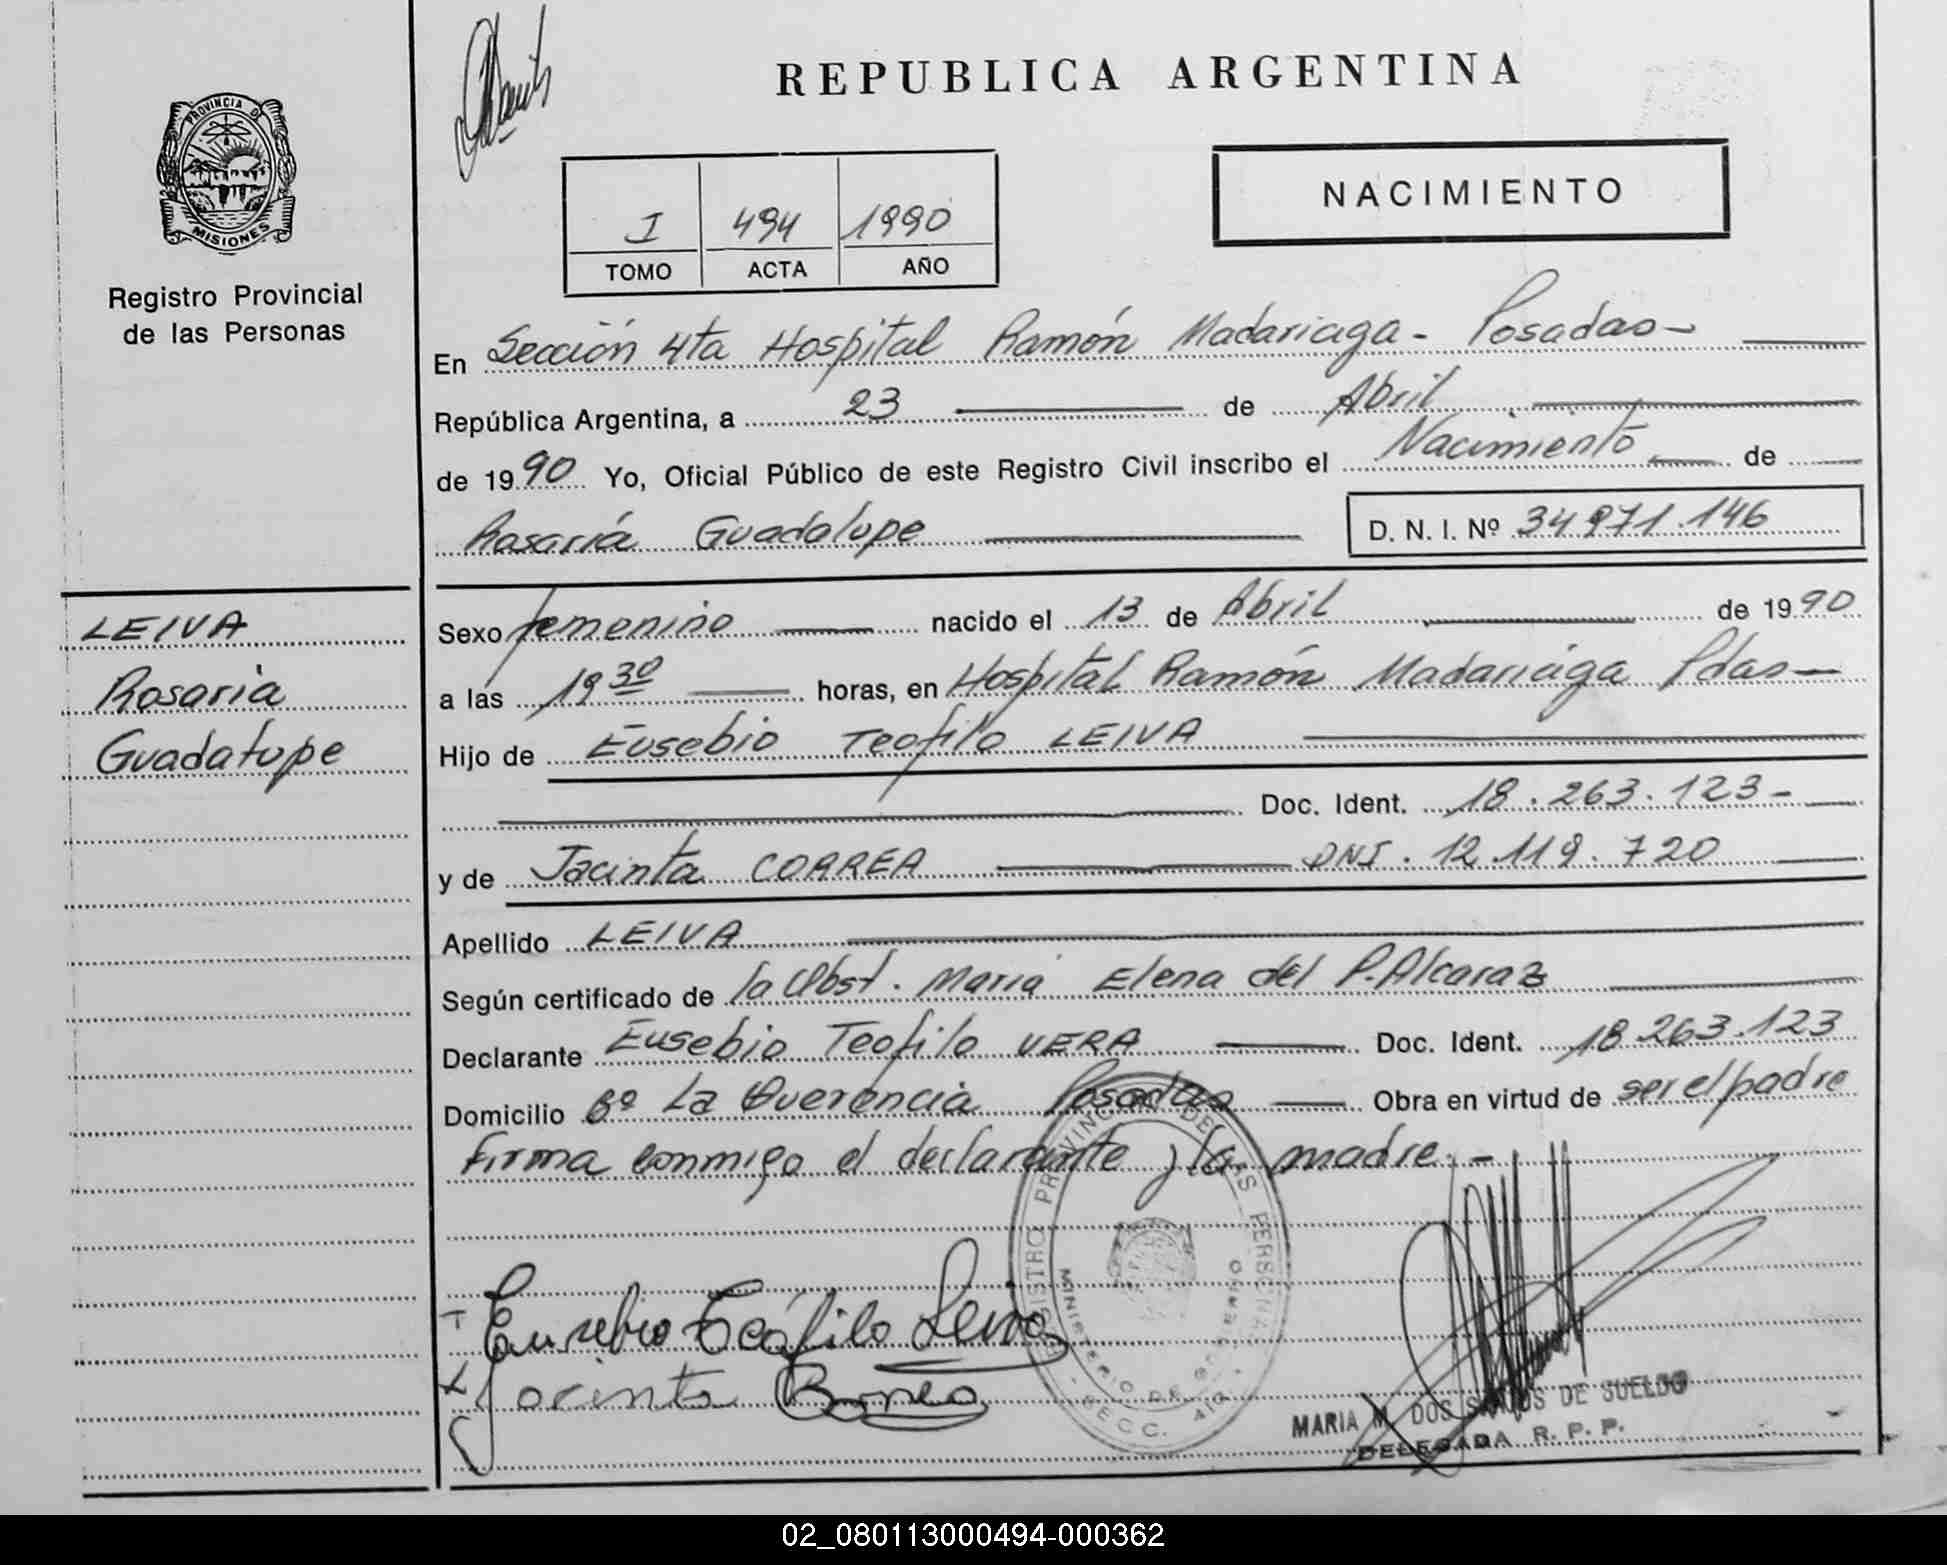 REPUBLICA ARGENTINA
PROVINCIA DE
MISIONES
Registro Provincial
de las Personas
NACIMIENTO
I 494 1990
TOMO ACTA AÑO
En Sección 4ta Hospital Ramón Madariaga - Posadas -
República Argentina, a 23 de Abril
de 1990 Yo, Oficial Público de este Registro Civil inscribo el Nacimiento de
Rosaria Guadalupe D. N. I. Nº 34971.146
LEIVA
Rosaria
Guadalupe
Sexo femenino nacido el 13 de Abril de 1990
a las 19 30 horas, en Hospital Ramón Madariaga Pdas -
Hijo de Eusebio Teofilo LEIVA
Doc. Ident. 18.263.123 -
y de Jacinta CORREA DNI. 12.119.720
Apellido LEIVA
Según certificado de la Obst. Maria Elena del P. Alcaraz
Declarante Eusebio Teofilo VERA Doc. Ident. 18 263.123
Domicilio Bº La Querencia Posadas Obra en virtud de ser el padre
Firma conmigo el declarante y la madre. -
REGISTRO PROVINCIAL DE LAS PERSONAS
MINISTERIO DE GOBIERNO
SECC. 4ta
Eusebio Teófilo Leiva
Jacinta Correa
MARIA M. DOS SANTOS DE SUELDO
DELEGADA R. P. P.
02_080113000494-000362